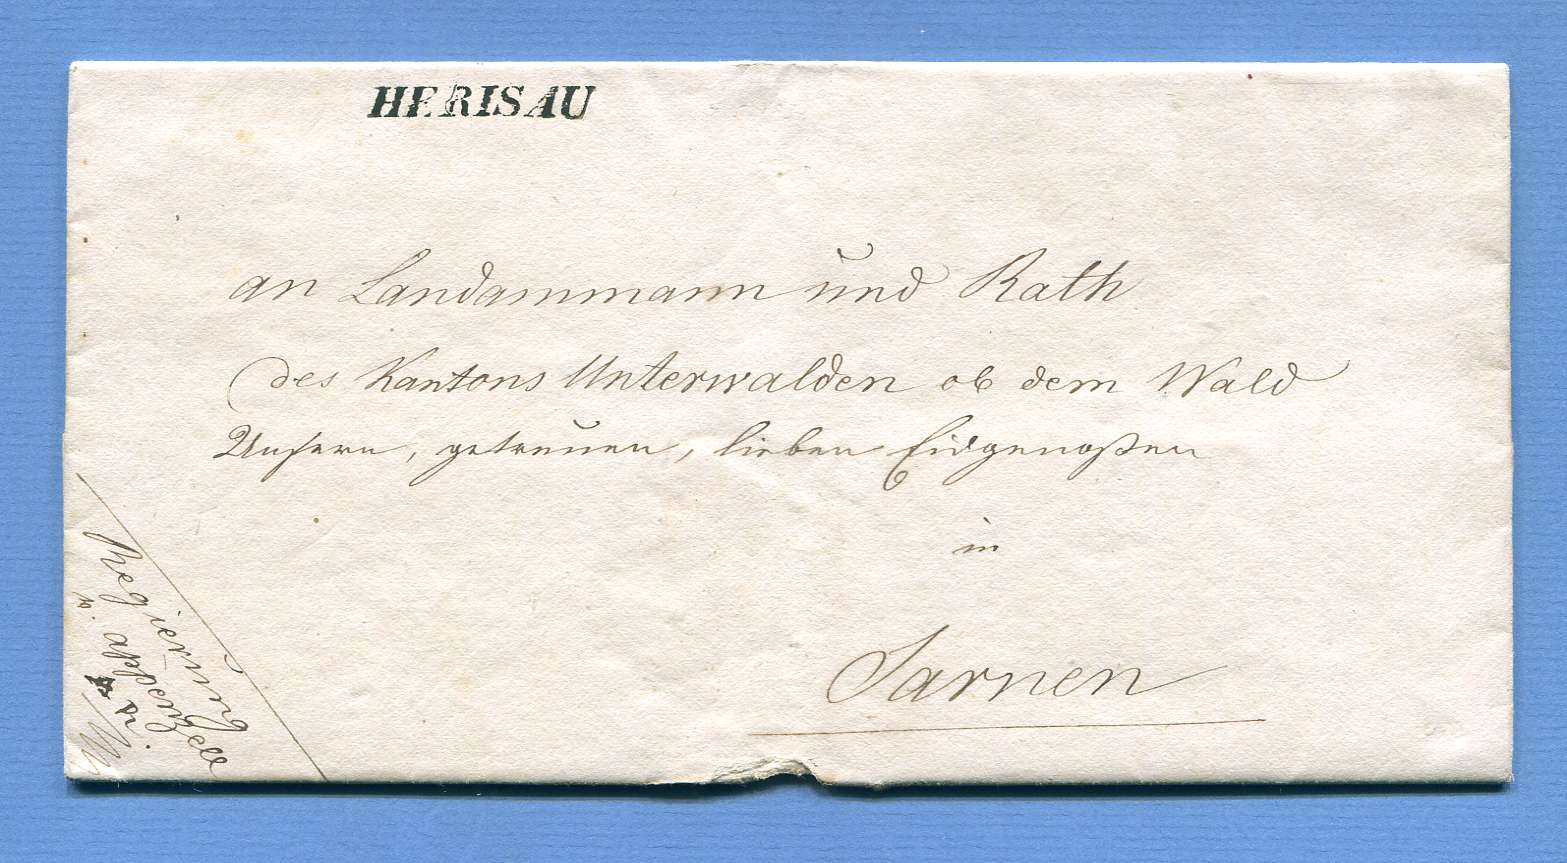 HERISAU
an Landammann und Rath
des Kantons Unterwalden ob dem Wald
Unsern, getreuen, lieben Eidgenoßen
in
Sarnen
Regierung
v. appenzell